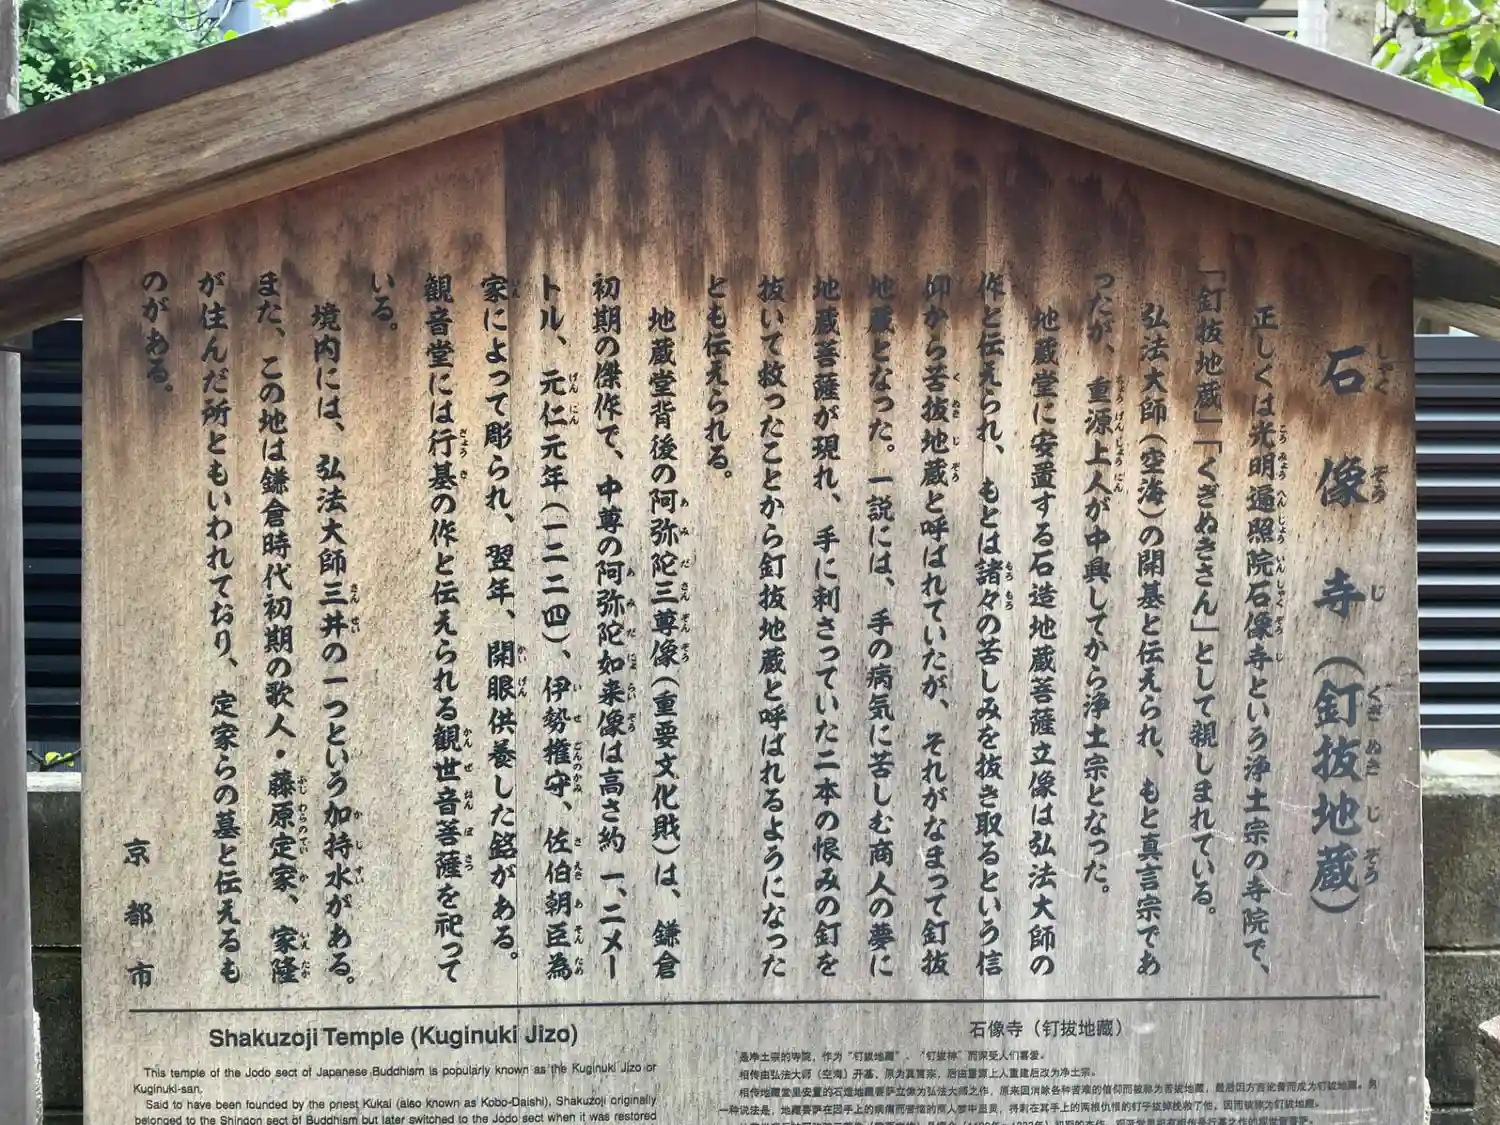 石像寺（釘抜地蔵）
正しくは光明遍照院石像寺という浄土宗の寺院で、
「釘抜地蔵」「くぎぬきさん」として親しまれている。
弘法大師（空海）の開基と伝えられ、もと真言宗であ
ったが、重源上人が中興してから浄土宗となった。
地蔵堂に安置する石造地蔵菩薩立像は弘法大師の
作と伝えられ、もとは諸々の苦しみを抜き取るという信
仰から苦抜地蔵と呼ばれていたが、それがなまって釘抜
地蔵となった。一説には、手の病気に苦しむ商人の夢に
地蔵菩薩が現れ、手に刺さっていた二本の恨みの釘を
抜いて救ったことから釘抜地蔵と呼ばれるようになった
とも伝えられる。
地蔵堂背後の阿弥陀三尊像（重要文化財）は、鎌倉
初期の傑作で、中尊の阿弥陀如来像は高さ約一、二メー
トル、元仁元年（一二二四）、伊勢権守、佐伯朝臣為
家によって彫られ、翌年、開眼供養した銘がある。
観音堂には行基の作と伝えられる観世音菩薩を祀って
いる。
境内には、弘法大師三井の一つという加持水がある。
また、この地は鎌倉時代初期の歌人・藤原定家、家隆
が住んだ所ともいわれており、定家らの墓と伝えるも
のがある。
京都市
Shakuzoji Temple (Kuginuki Jizo)
This temple of the Jodo sect of Japanese Buddhism is popularly known as the Kuginuki Jizo or
Kuginuki-san.
Said to have been founded by the priest Kukai (also known as Kobo-Daishi), Shakuzoji originally
belonged to the Shingon sect of Buddhism but later switched to the Jodo sect when it was restored
石像寺（钉拔地藏）
是净土宗的寺院，作为“钉拔地藏”、“钉拔神”而深受人们喜爱。
相传由弘法大师（空海）开基，原为真言宗，后由重源上人重建后改为净土宗。
相传地藏堂里安置的石造地藏菩萨立像为弘法大师之作，原来因消除各种苦难的信仰而被称为苦拔地藏，最后因方言论费而成为钉拔地藏。另
一种说法是，地藏菩萨在因手上的病痛而苦恼的商人梦中显灵，将刺在其手上的两根仇恨的钉子拔掉挽救了他，因而被称为钉拔地藏。